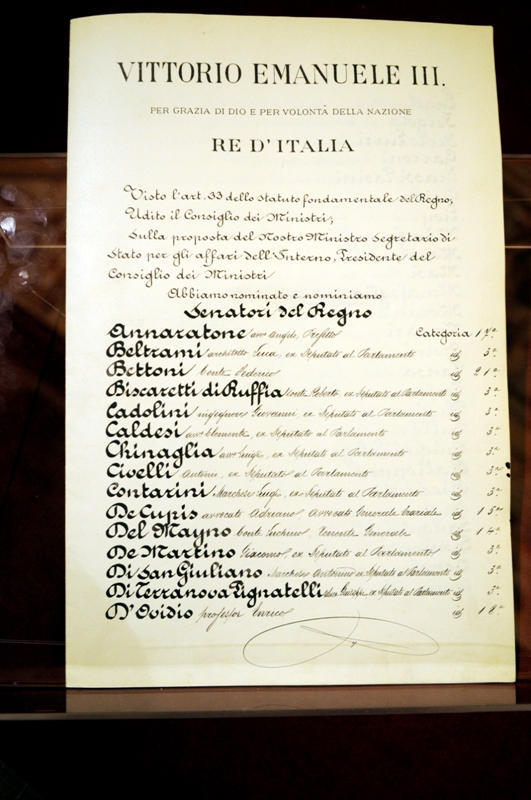 VITTORIO EMANUELE III.
PER GRAZIA DI DIO E PER VOLONTÀ DELLA NAZIONE
RE D'ITALIA
Visto l'art. 33 dello Statuto fondamentale del Regno;
Udito il Consiglio dei Ministri;
Sulla proposta del Nostro Ministro Segretario di
Stato per gli affari dell'Interno, Presidente del
Consiglio dei Ministri
Abbiamo nominato e nominiamo
Senatori del Regno
Annaratone avv. Angelo, Prefetto Categoria 17a
Beltrami architetto Luca, ex Deputato al Parlamento id 3a
Bettoni conte Federico id 21a
Biscaretti di Ruffia conte Roberto, ex Deputato al Parlamento id 3a
Cadolini ingegnere Giovanni, ex Deputato al Parlamento id 3a
Caldesi avv. Clemente, ex Deputato al Parlamento id 3a
Chinaglia avv. Luigi, ex Deputato al Parlamento id 3a
Civelli Antonio, ex Deputato al Parlamento id 3a
Contarini Marchese Luigi, ex Deputato al Parlamento id 3a
De Cupis avvocato Adriano, Avvocato Generale Erariale id 15a
Del Mayno conte Luchino, Tenente Generale id 14a
De Martino Giacomo, ex Deputato al Parlamento id 3a
Di San Giuliano Marchese Antonino ex Deputato al Parlamento id 3a
Di Terranova Pignatelli Giuseppe ex Deputato al Parlamento id 3a
D'Ovidio professor Enrico id 18a